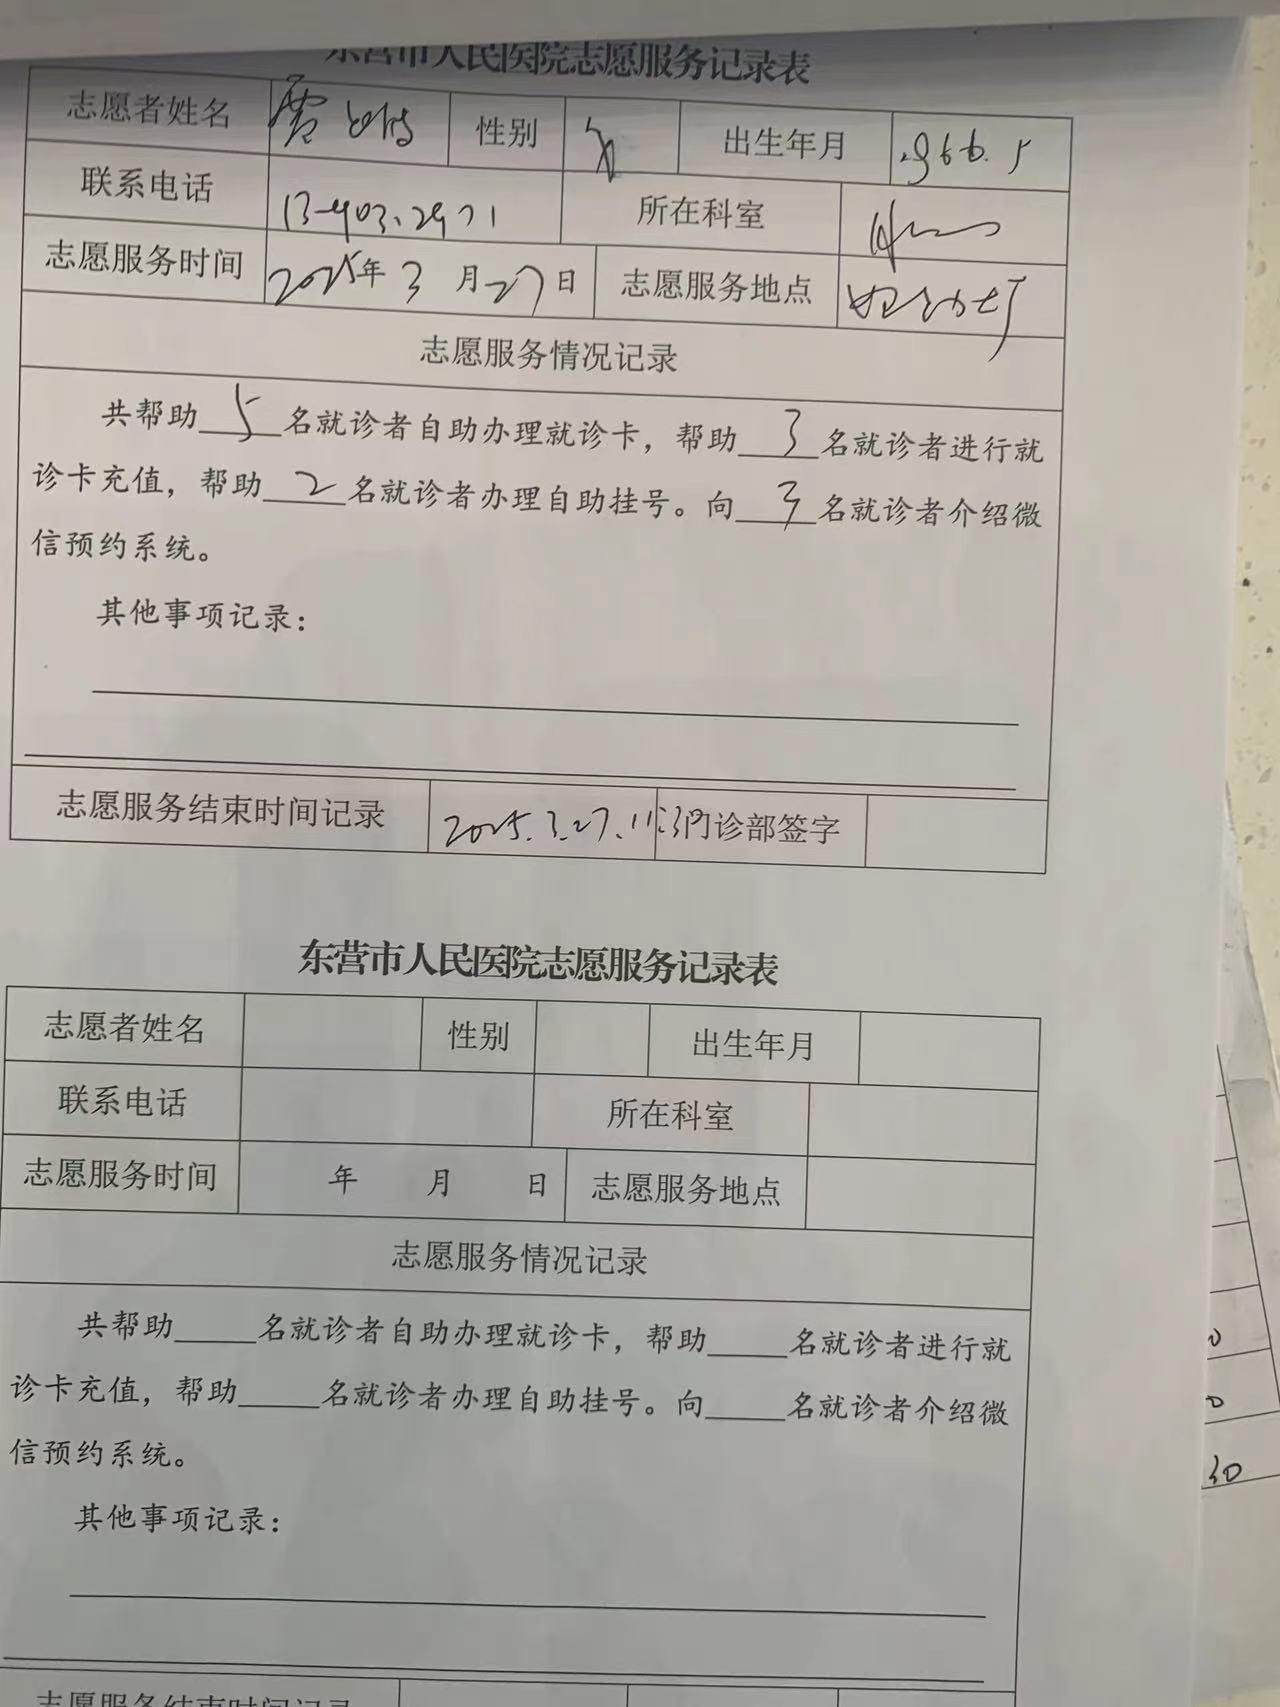 东营市人民医院志愿服务记录表
志愿者姓名 性别 女 出生年月 1966.5
联系电话 所在科室
志愿服务时间 2025年3月27日 志愿服务地点
志愿服务情况记录
共帮助 5 名就诊者自助办理就诊卡，帮助 3 名就诊者进行就
诊卡充值，帮助 2 名就诊者办理自助挂号。向 3 名就诊者介绍微
信预约系统。
其他事项记录：
志愿服务结束时间记录 2025.3.27. 门诊部签字
东营市人民医院志愿服务记录表
志愿者姓名 性别 出生年月
联系电话 所在科室
志愿服务时间 年 月 日 志愿服务地点
志愿服务情况记录
共帮助_____名就诊者自助办理就诊卡，帮助_____名就诊者进行就
诊卡充值，帮助_____名就诊者办理自助挂号。向_____名就诊者介绍微
信预约系统。
其他事项记录：
志愿服务结束时间记录
0
0
30